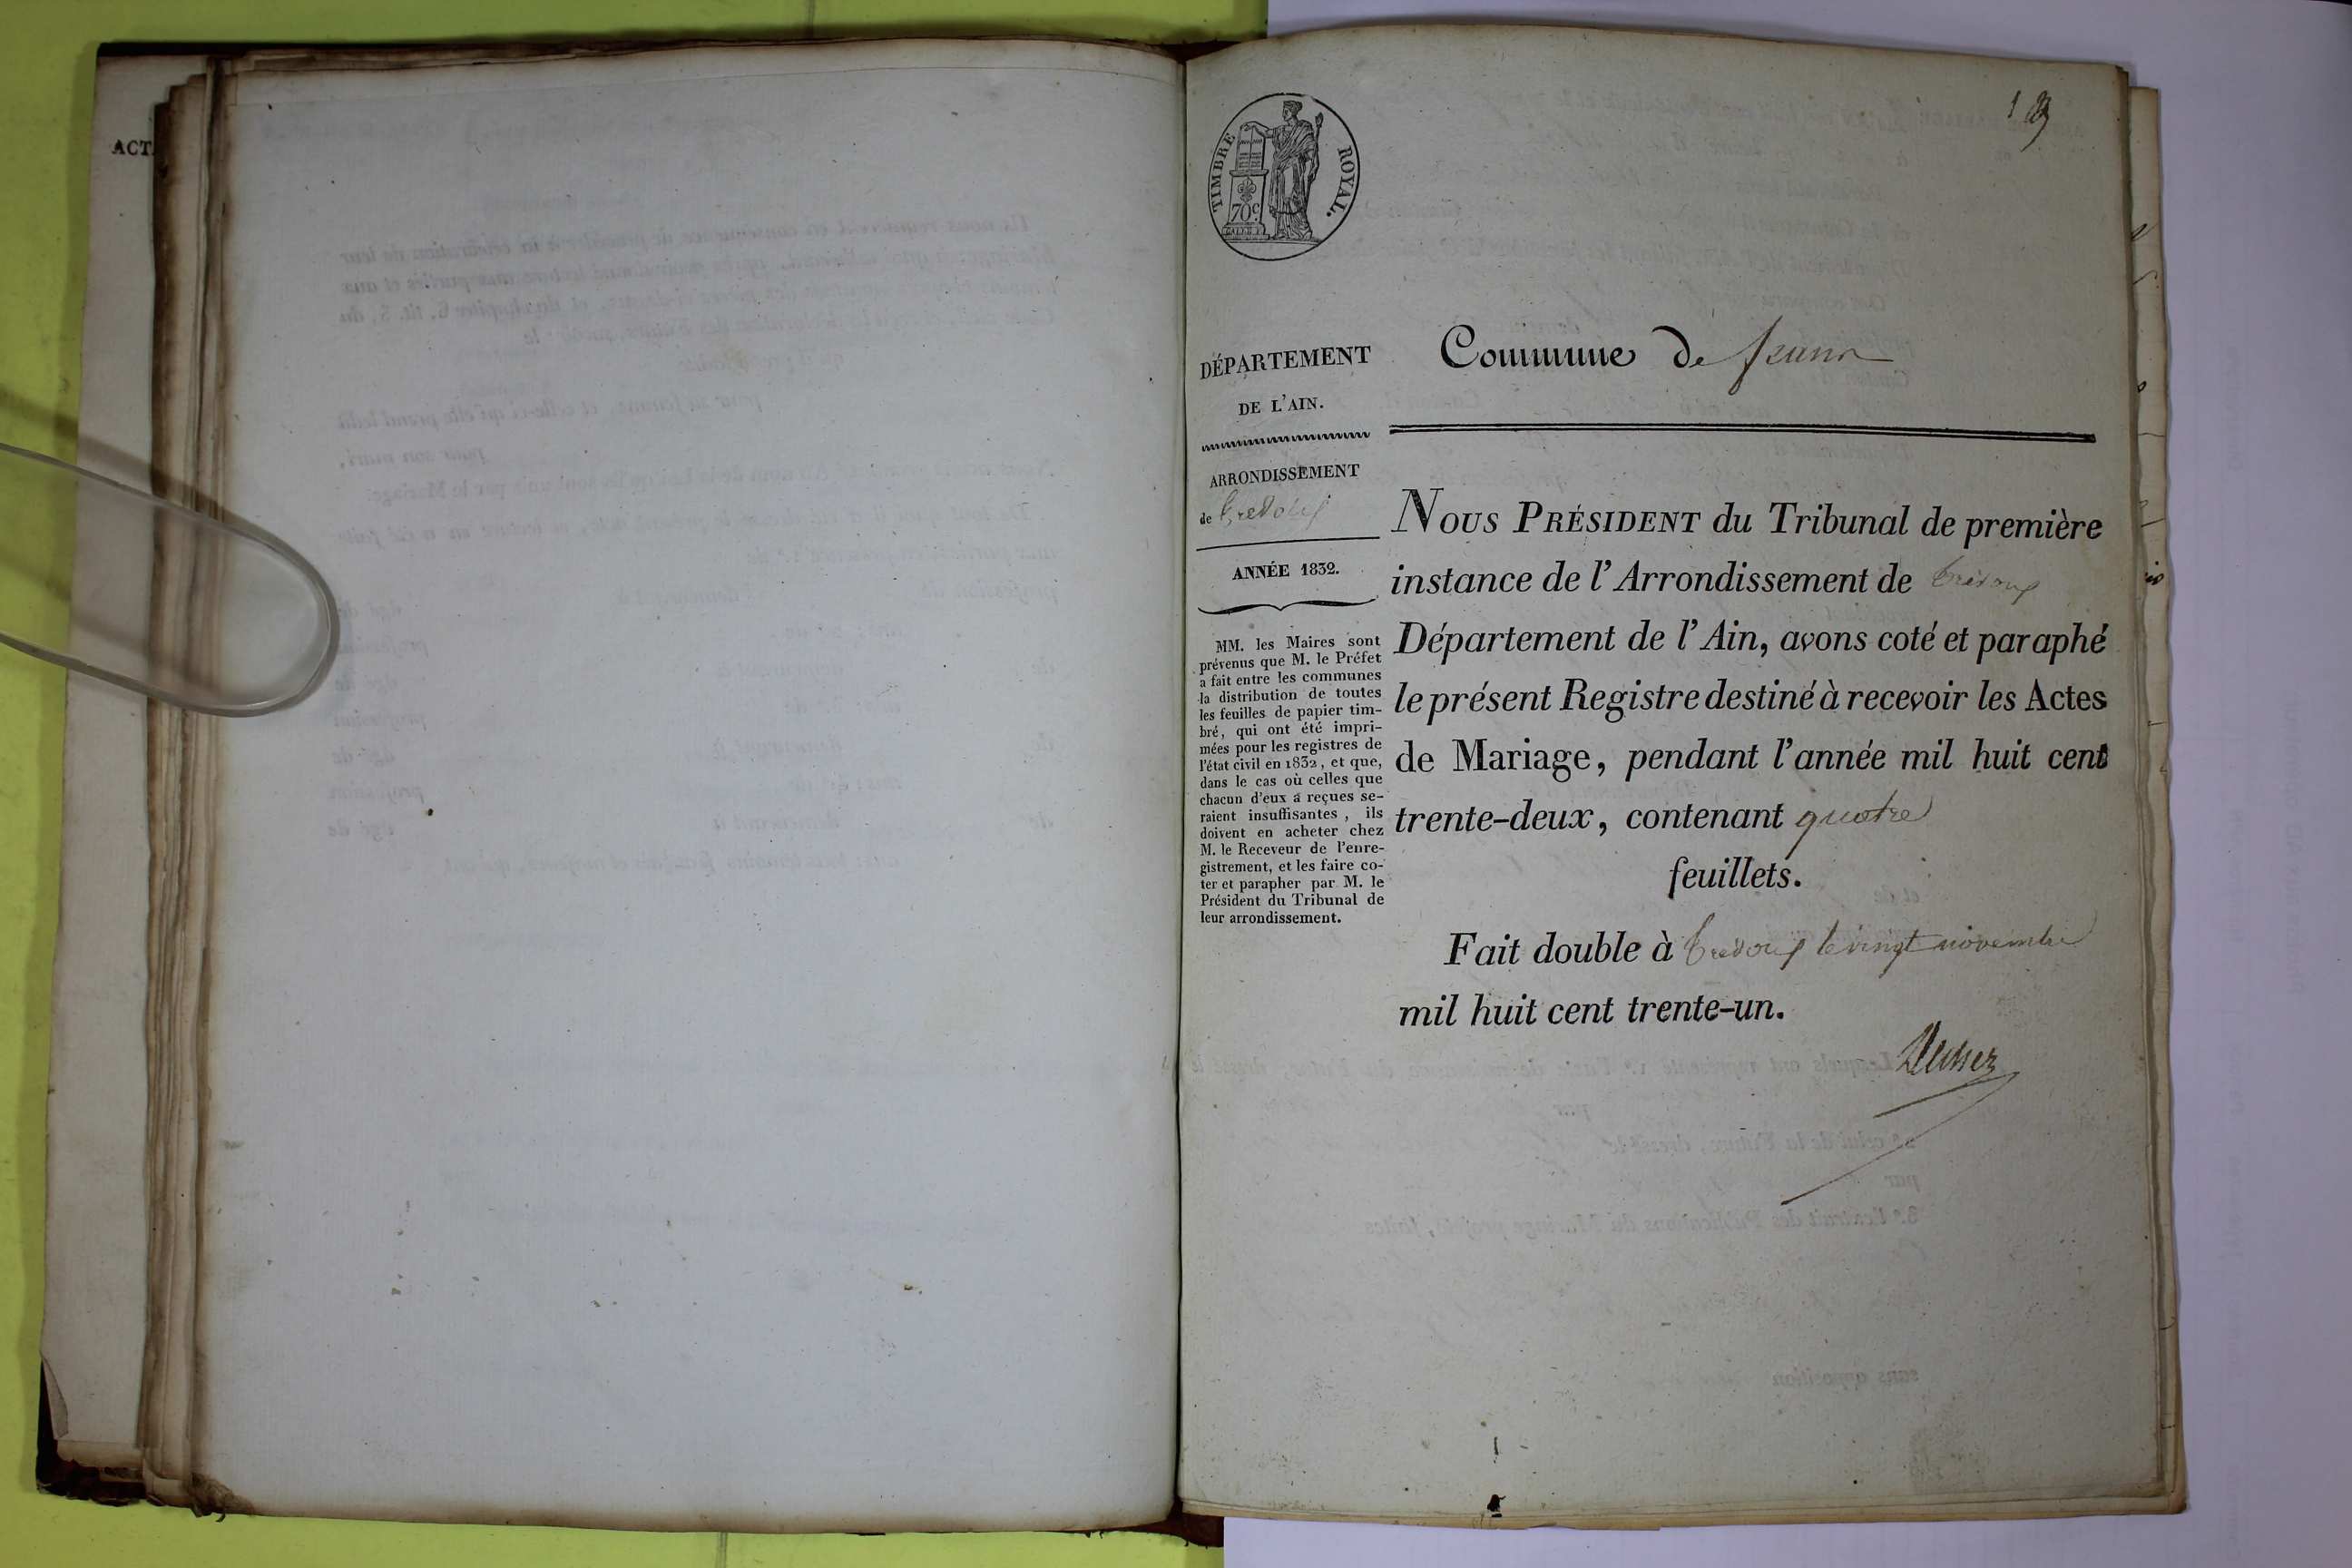 ACT
TIMBRE ROYAL.
70c
1
DÉPARTEMENT
DE L'AIN.
ARRONDISSEMENT
de Trevoux
ANNÉE 1832.
MM. les Maires sont
prévenus que M. le Préfet
a fait entre les communes
la distribution de toutes
les feuilles de papier tim-
bré, qui ont été impri-
mées pour les registres de
l'état civil en 1832, et que,
dans le cas où celles que
chacun d'eux a reçues se-
raient insuffisantes, ils
doivent en acheter chez
M. le Receveur de l'enre-
gistrement, et les faire co-
ter et parapher par M. le
Président du Tribunal de
leur arrondissement.
Commune de
NOUS PRÉSIDENT du Tribunal de première
instance de l'Arrondissement de Trévoux
Département de l'Ain, avons coté et paraphé
le présent Registre destiné à recevoir les Actes
de Mariage, pendant l'année mil huit cent
trente-deux, contenant quatre
feuillets.
Fait double à Trévoux le vingt novembre
mil huit cent trente-un.